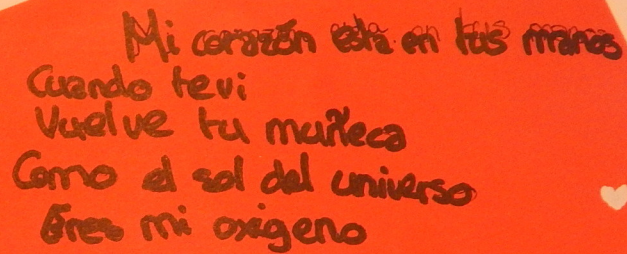 Mi corazón está en tus manos
Cuando te vi
Vuelve tu muñeca
Como el sol del universo
Eres mi oxigeno